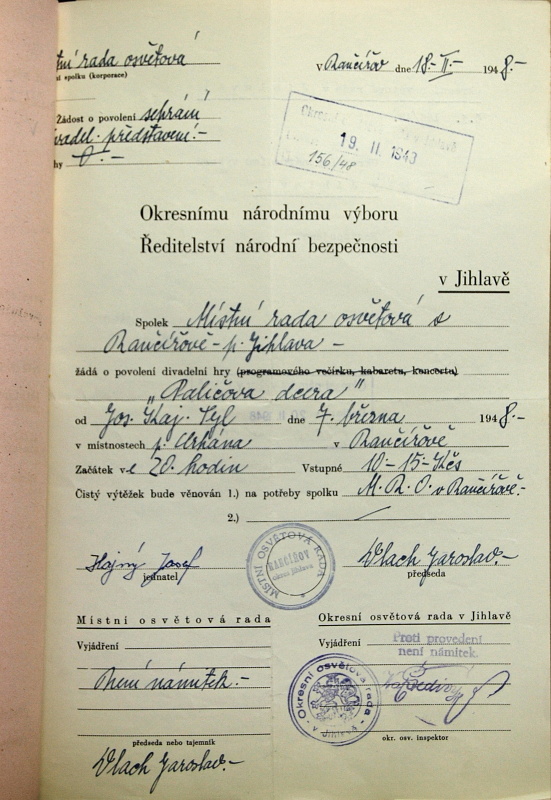 tní rada osvětová
spolku (korporace)
v Rančířov dne 18.-II.- 1948.-
Žádost o povolení sehrání
divadel. představení.-
Okresní v Jihlavě
19. II. 1948
156/48
Okresnímu národnímu výboru
Ředitelství národní bezpečnosti
v Jihlavě
Spolek Místní rada osvětová v
Rančířově - p. Jihlava -
žádá o povolení divadelní hry (programového večírku, kabaretu, koncertu)
„Paličova dcera"
od Jos. Kaj. Tyl dne 7. března 1948.-
v místnostech p. Urbána v Rančířově
Začátek ve 20. hodin Vstupné 10-15- Kčs
Čistý výtěžek bude věnován 1.) na potřeby spolku M. R. O. v Rančířově.-
2.)
Hajný Josef Vlach Jaroslav.-
jednatel předseda
MÍSTNÍ OSVĚTOVÁ RADA
RANČÍŘOV
okres Jihlava
Místní osvětová rada Okresní osvětová rada v Jihlavě
Vyjádření Vyjádření Proti provedení
není námitek.
Není námitek.-
Okresní osvětová rada
v Jihlavě
předseda nebo tajemník okr. osv. inspektor
Vlach Jaroslav.-